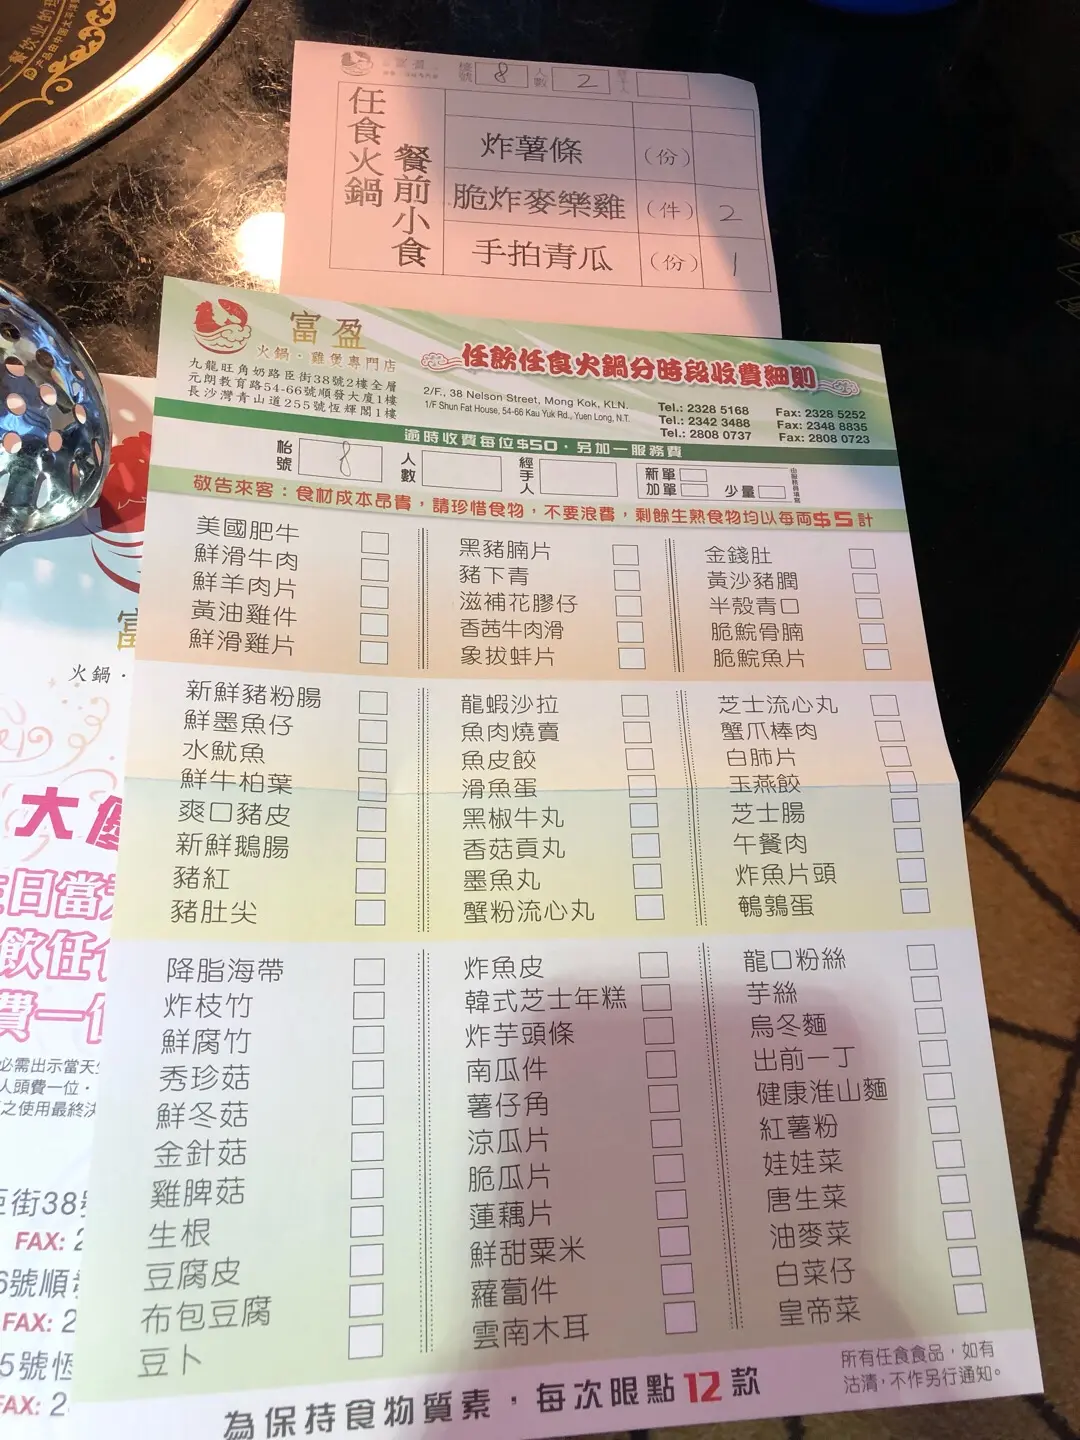 餐饮业的理
产品由中國太平洋
富盈
檯號 8 人數 2
任食火鍋
餐前小食
炸薯條 (份)
脆炸麥樂雞 (件) 2
手拍青瓜 (份) 1
富盈
火鍋·雞煲專門店
任飲任食火鍋分時段收費細則
九龍旺角奶路臣街38號2樓全層
元朗教育路54-66號順發大廈1樓
長沙灣青山道255號恆輝閣1樓
2/F., 38 Nelson Street, Mong Kok, KLN.
1/F Shun Fat House, 54-66 Kau Yuk Rd., Yuen Long, N.T.
Tel.: 2328 5168 Fax: 2328 5252
Tel.: 2342 3488 Fax: 2348 8835
Tel.: 2808 0737 Fax: 2808 0723
逾時收費每位$50·另加一服務費
枱號 8 人數 經手人 新單 加單 少量
敬告來客：食材成本昂貴，請珍惜食物，不要浪費，剩餘生熟食物均以每両$5計
美國肥牛
鮮滑牛肉
鮮羊肉片
黃油雞件
鮮滑雞片
黑豬腩片
豬下青
滋補花膠仔
香茜牛肉滑
象拔蚌片
金錢肚
黃沙豬膶
半殼青口
脆鯇骨腩
脆鯇魚片
新鮮豬粉腸
鮮墨魚仔
水魷魚
鮮牛柏葉
爽口豬皮
新鮮鵝腸
豬紅
豬肚尖
龍蝦沙拉
魚肉燒賣
魚皮餃
滑魚蛋
黑椒牛丸
香菇貢丸
墨魚丸
蟹粉流心丸
芝士流心丸
蟹爪棒肉
白肺片
玉燕餃
芝士腸
午餐肉
炸魚片頭
鵪鶉蛋
降脂海帶
炸枝竹
鮮腐竹
秀珍菇
鮮冬菇
金針菇
雞脾菇
生根
豆腐皮
布包豆腐
豆卜
炸魚皮
韓式芝士年糕
炸芋頭條
南瓜件
薯仔角
涼瓜片
脆瓜片
蓮藕片
鮮甜粟米
蘿蔔件
雲南木耳
龍口粉絲
芋絲
烏冬麵
出前一丁
健康淮山麵
紅薯粉
娃娃菜
唐生菜
油麥菜
白菜仔
皇帝菜
為保持食物質素，每次限點12款
所有任食食品，如有
沽清，不作另行通知。
富
火鍋·
大優
日當
飲任
費一位
必需出示當天
人頭費一位·
之使用最終決
臣街38號
FAX: 2
6號順發
FAX: 2
5號恆
FAX: 2